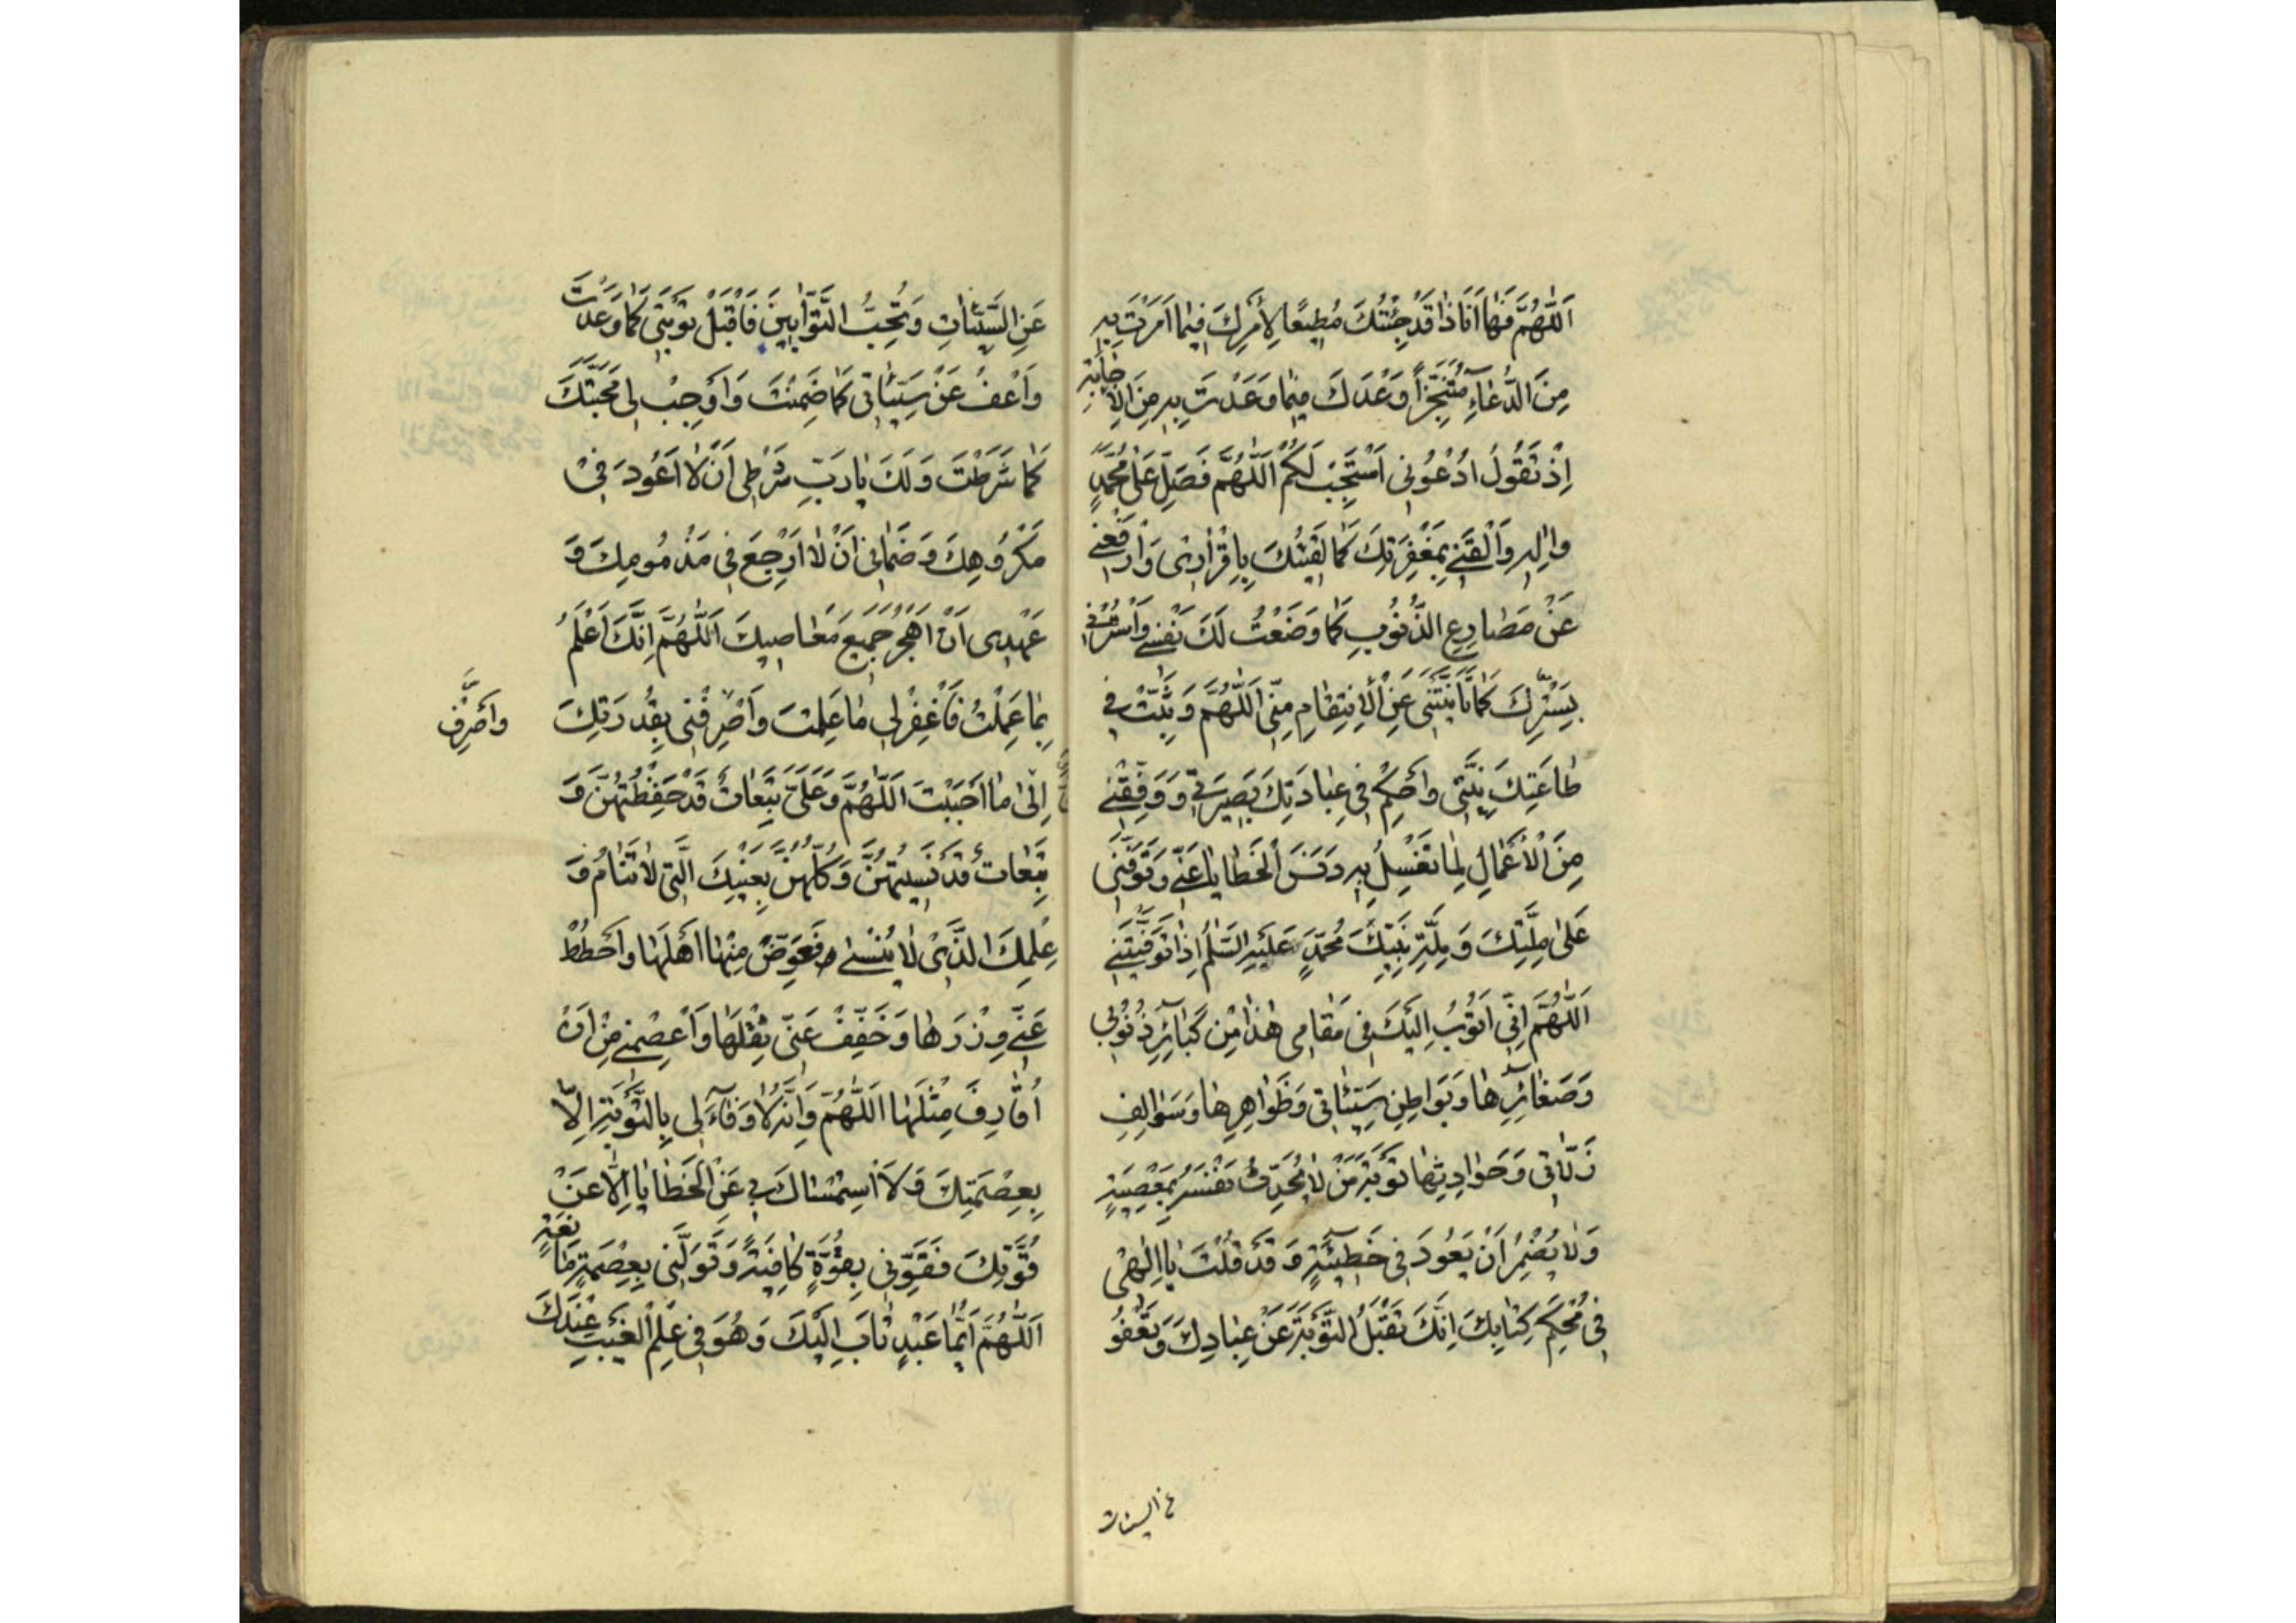 اَللّٰهُمَّ فَهٰا اَنَا ذٰا قَدْ جِئْتُكَ مُطيعًا لِأَمْرِكَ فيمٰا اَمَرْتَ بِهِ
مِنَ الدُّعٰآءِ مُتَنَجِّزاً وَعْدَكَ فيمٰا وَعَدْتَ بِهِ مِنَ الْاِجٰابَةِ
اِذْ تَقُولُ ادْعُونى اَسْتَجِبْ لَكُمْ اَللّٰهُمَّ فَصَلِّ عَلىٰ مُحَمَّدٍ
وَاٰلِهِ وَالْقَنى بِمَغْفِرَتِكَ كَمٰا لَقيتُكَ بِاِقْرٰارى وَارْفَعْنى
عَنْ مَصٰارِعِ الذُّنُوبِ كَمٰا وَضَعْتُ لَكَ نَفْسى وَاسْتُرْنى
بِسِتْرِكَ كَمٰا تَاَنَّيْتَنى عَنِ الْاِنْتِقٰامِ مِنّى اَللّٰهُمَّ وَثَبِّتْ فى
طٰاعَتِكَ نِيَّتى وَاَحْكِمْ فى عِبٰادَتِكَ بَصيرَتى وَوَفِّقْنى
مِنَ الْاَعْمٰالِ لِمٰا تَغْسِلُ بِهِ دَنَسَ الْخَطٰايٰا عَنّى وَتَوَفَّنى
عَلىٰ مِلَّتِكَ وَمِلَّةِ نَبِيِّكَ مُحَمَّدٍ عَلَيْهِ السَّلٰمُ اِذٰا تَوَفَّيْتَنى
اَللّٰهُمَّ اِنّى اَتُوبُ اِلَيْكَ فى مَقٰامى هٰذٰا مِنْ كَبٰآئِرِ ذُنُوبى
وَصَغٰآئِرِهٰا وَبَوٰاطِنِ سَيِّئٰاتى وَظَوٰاهِرِهٰا وَسَوٰالِفِ
زَلّٰاتى وَحَوٰادِثِهٰا تَوْبَةَ مَنْ لٰا يُحَدِّثُ نَفْسَهُ بِمَعْصِيَةٍ
وَلٰا يُضْمِرُ اَنْ يَعُودَ فى خَطيٓئَةٍ وَقَدْ قُلْتَ يٰا اِلٰهى
فى مُحْكَمِ كِتٰابِكَ اِنَّكَ تَقْبَلُ التَّوْبَةَ عَنْ عِبٰادِكَ وَتَعْفُو
عن السيئات
عَنِ السَّيِّئٰاتِ وَتُحِبُّ التَّوّٰابينَ فَاقْبَلْ تَوْبَتى كَمٰا وَعَدْتَ
وَاعْفُ عَنْ سَيِّئٰاتى كَمٰا ضَمِنْتَ وَاَوْجِبْ لى مَحَبَّتَكَ
كَمٰا شَرَطْتَ وَلَكَ يٰا رَبِّ شَرْطى اَنْ لٰا اَعُودَ فى
مَكْرُوهِكَ وَضَمٰانى اَنْ لٰا اَرْجِعَ فى مَذْمُومِكَ وَ
عَهْدى اَنْ اَهْجُرَ جَميعَ مَعٰاصيكَ اَللّٰهُمَّ اِنَّكَ اَعْلَمُ
بِمٰا عَمِلْتُ فَاغْفِرْ لى مٰا عَلِمْتَ وَاصْرِفْنى بِقُدْرَتِكَ
وَاَصْرِفْ
اِلىٰ مٰا اَحْبَبْتَ اَللّٰهُمَّ وَعَلَىَّ تَبِعٰاتٌ قَدْ حَفِظْتُهُنَّ وَ
تَبِعٰاتٌ قَدْ نَسيتُهُنَّ وَكُلُّهُنَّ بِعَيْنِكَ الَّتى لٰا تَنٰامُ وَ
عِلْمِكَ الَّذى لٰا يُنْسىٰ فَعَوِّضْ مِنْهٰا اَهْلَهٰا وَاحْطُطْ
عَنّى وِزْرَهٰا وَخَفِّفْ عَنّى ثِقْلَهٰا وَاعْصِمْنى مِنْ اَنْ
اُقٰارِفَ مِثْلَهٰا اَللّٰهُمَّ وَاِنَّهُ لٰا وَفٰآءَ لى بِالتَّوْبَةِ اِلّٰا
بِعِصْمَتِكَ وَلَا اسْتِمْسٰاكَ بى عَنِ الْخَطٰايٰا اِلّٰا عَنْ
قُوَّتِكَ فَقَوِّنى بِقُوَّةٍ كٰافِيَةٍ وَتَوَلَّنى بِعِصْمَةٍ مٰانِعَةٍ
اَللّٰهُمَّ اَيُّمٰا عَبْدٍ تٰابَ اِلَيْكَ وَهُوَ فى عِلْمِ الْغَيْبِ عِنْدَكَ